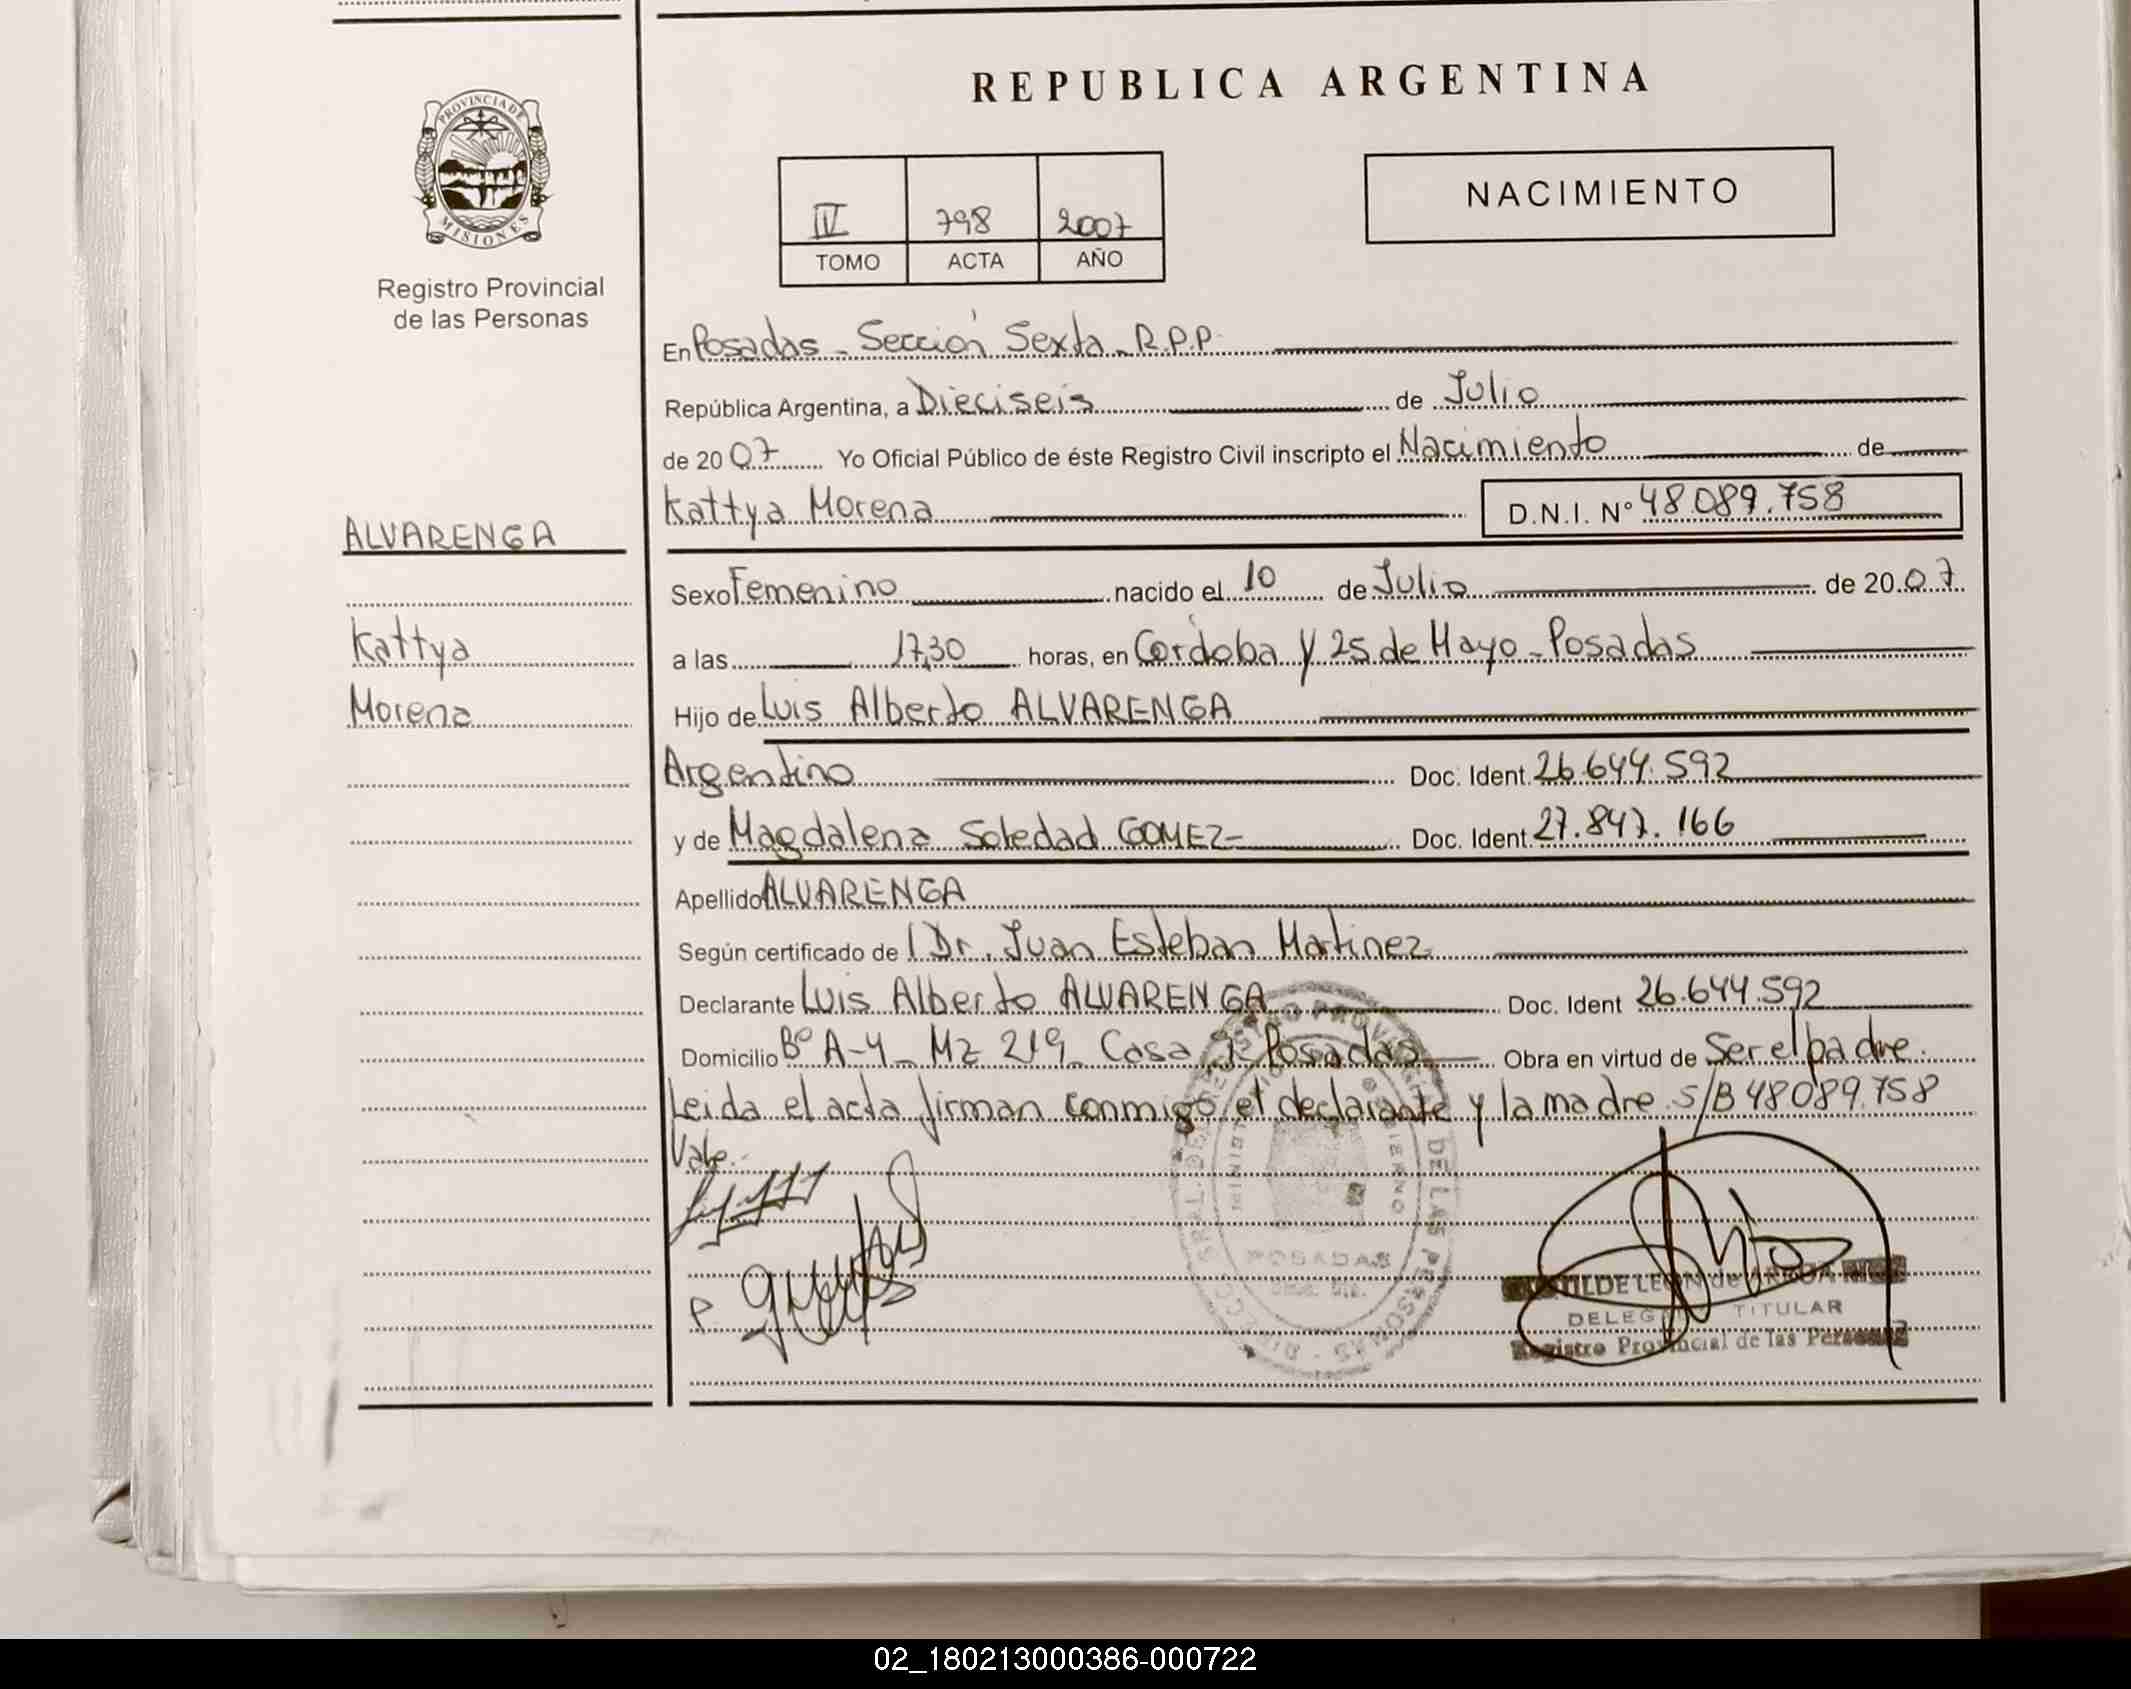 REPUBLICA ARGENTINA
PROVINCIA DE
MISIONES
Registro Provincial
de las Personas
IV 798 2007
TOMO ACTA AÑO
NACIMIENTO
En Posadas - Sección Sexta - R.P.P.
República Argentina, a Dieciseis de Julio
de 2007 Yo Oficial Público de éste Registro Civil inscripto el Nacimiento de
Kattya Morena D.N.I. Nº 48.089.758
ALVARENGA
Kattya
Morena
Sexo Femenino nacido el 10 de Julio de 2007
a las 17,30 horas, en Cordoba y 25 de Mayo - Posadas
Hijo de Luis Alberto ALVARENGA
Argentino Doc. Ident. 26.644.592
y de Magdalena Soledad GOMEZ - Doc. Ident. 27.847.166
Apellido ALVARENGA
Según certificado de l Dr. Juan Esteban Martinez
Declarante Luis Alberto ALVARENGA Doc. Ident 26.644.592
Domicilio Bº A-4 - Mz 219 - Casa Posadas Obra en virtud de Ser el padre.
Leida el acta firman conmigo el declarante y la madre. S/B 48089.758
Vale.
POSADAS
DE LAS PERSONAS
TILDE LEON de
TITULAR
Registro Provincial de las Personas
02_180213000386-000722